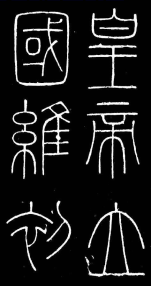 皇帝立
國維初